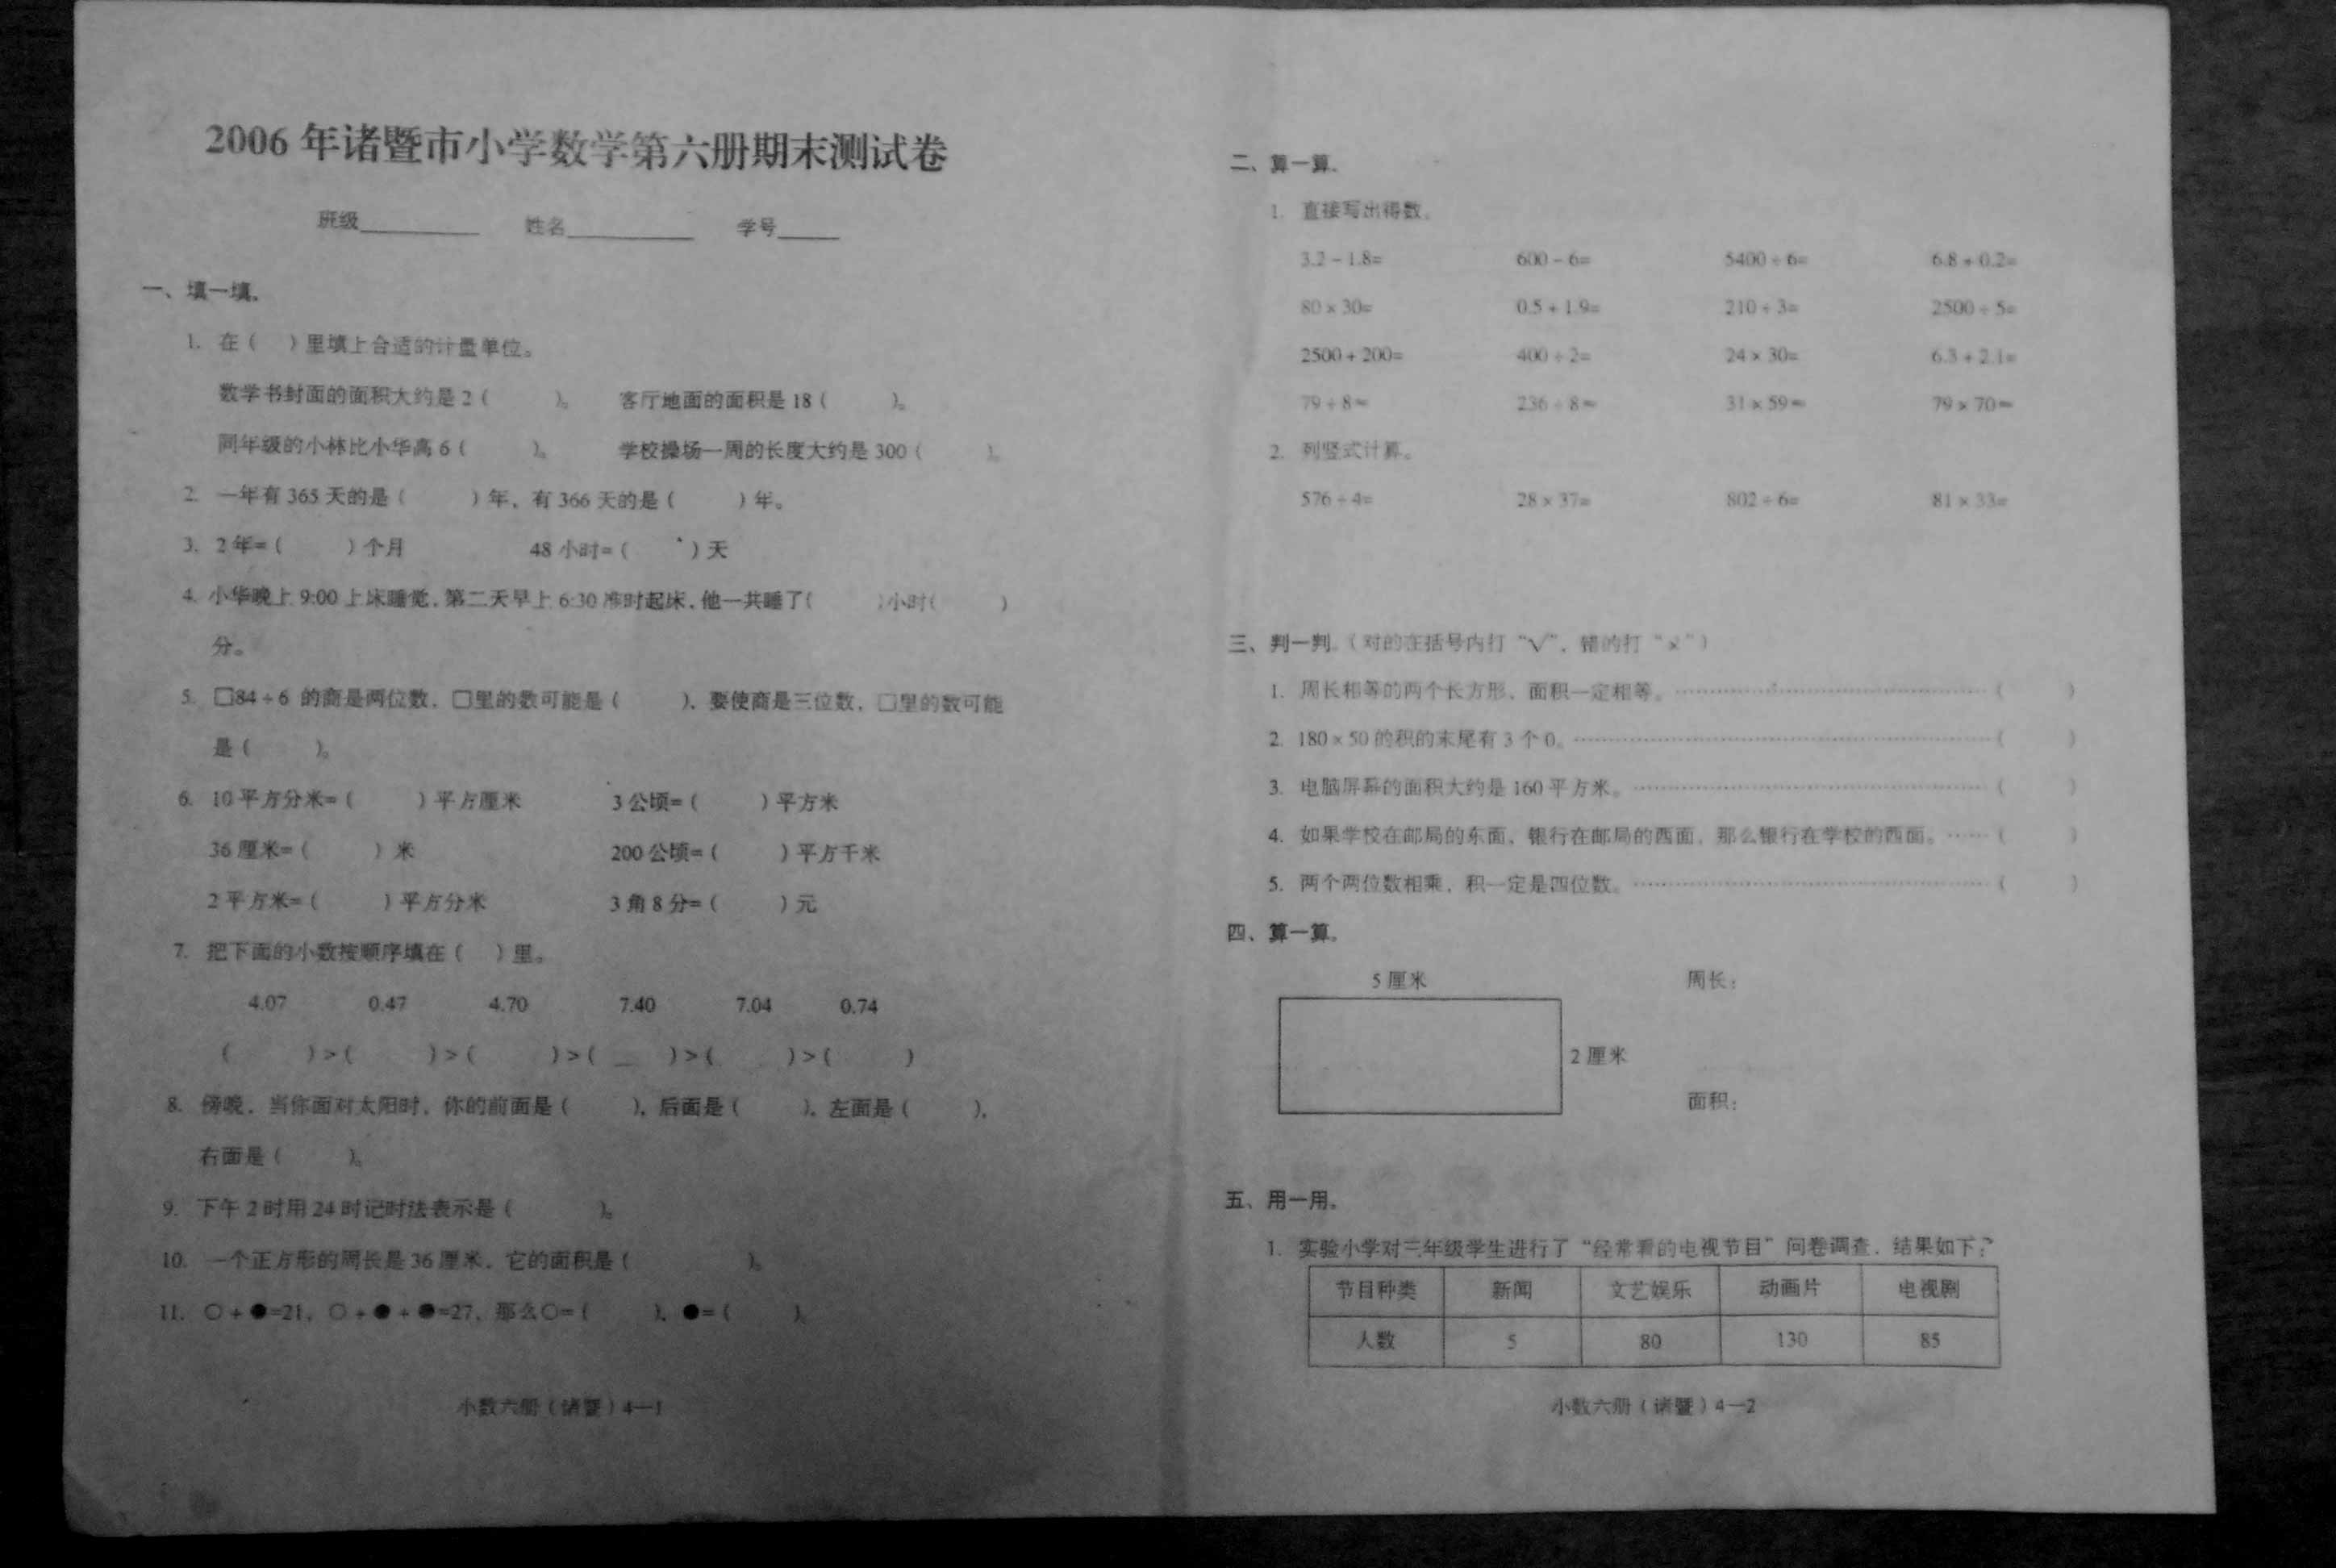 2006年诸暨市小学数学第六册期末测试卷
班级 姓名 学号
一、填一填。
1. 在（ ）里填上合适的计量单位。
数学书封面的面积大约是2（ ）。 客厅地面的面积是18（ ）。
同年级的小林比小华高6（ ）。 学校操场一周的长度大约是300（ ）。
2. 一年有365天的是（ ）年，有366天的是（ ）年。
3. 2年=（ ）个月 48小时=（ ）天
4. 小华晚上9:00上床睡觉，第二天早上6:30准时起床，他一共睡了（ ）小时（ ）
分。
5. □84÷6 的商是两位数，□里的数可能是（ ），要使商是三位数，□里的数可能
是（ ）。
6. 10平方分米=（ ）平方厘米 3公顷=（ ）平方米
36厘米=（ ）米 200公顷=（ ）平方千米
2平方米=（ ）平方分米 3角8分=（ ）元
7. 把下面的小数按顺序填在（ ）里。
4.07 0.47 4.70 7.40 7.04 0.74
（ ）>（ ）>（ ）>（ ）>（ ）>（ ）
8. 傍晚，当你面对太阳时，你的前面是（ ），后面是（ ），左面是（ ），
右面是（ ）。
9. 下午2时用24时记时法表示是（ ）。
10. 一个正方形的周长是36厘米，它的面积是（ ）。
11. ○+●=21，○+●+●=27，那么○=（ ），●=（ ）。
小数六册（诸暨）4—1
二、算一算。
1. 直接写出得数。
3.2－1.8= 600－6= 5400÷6= 6.8+0.2=
80×30= 0.5+1.9= 210÷3= 2500÷5=
2500+200= 400÷2= 24×30= 6.3+2.1=
79÷8≈ 236÷8≈ 31×59≈ 79×70≈
2. 列竖式计算。
576÷4= 28×37= 802÷6= 81×33=
三、判一判。（对的在括号内打“√”，错的打“×”）
1. 周长相等的两个长方形，面积一定相等。……（ ）
2. 180×50的积的末尾有3个0。……（ ）
3. 电脑屏幕的面积大约是160平方米。……（ ）
4. 如果学校在邮局的东面，银行在邮局的西面，那么银行在学校的西面。……（ ）
5. 两个两位数相乘，积一定是四位数。……（ ）
四、算一算。
5厘米 周长：
2厘米
面积：
五、用一用。
1. 实验小学对三年级学生进行了“经常看的电视节目”问卷调查，结果如下：
节目种类 新闻 文艺娱乐 动画片 电视剧
人数 5 80 130 85
小数六册（诸暨）4—2